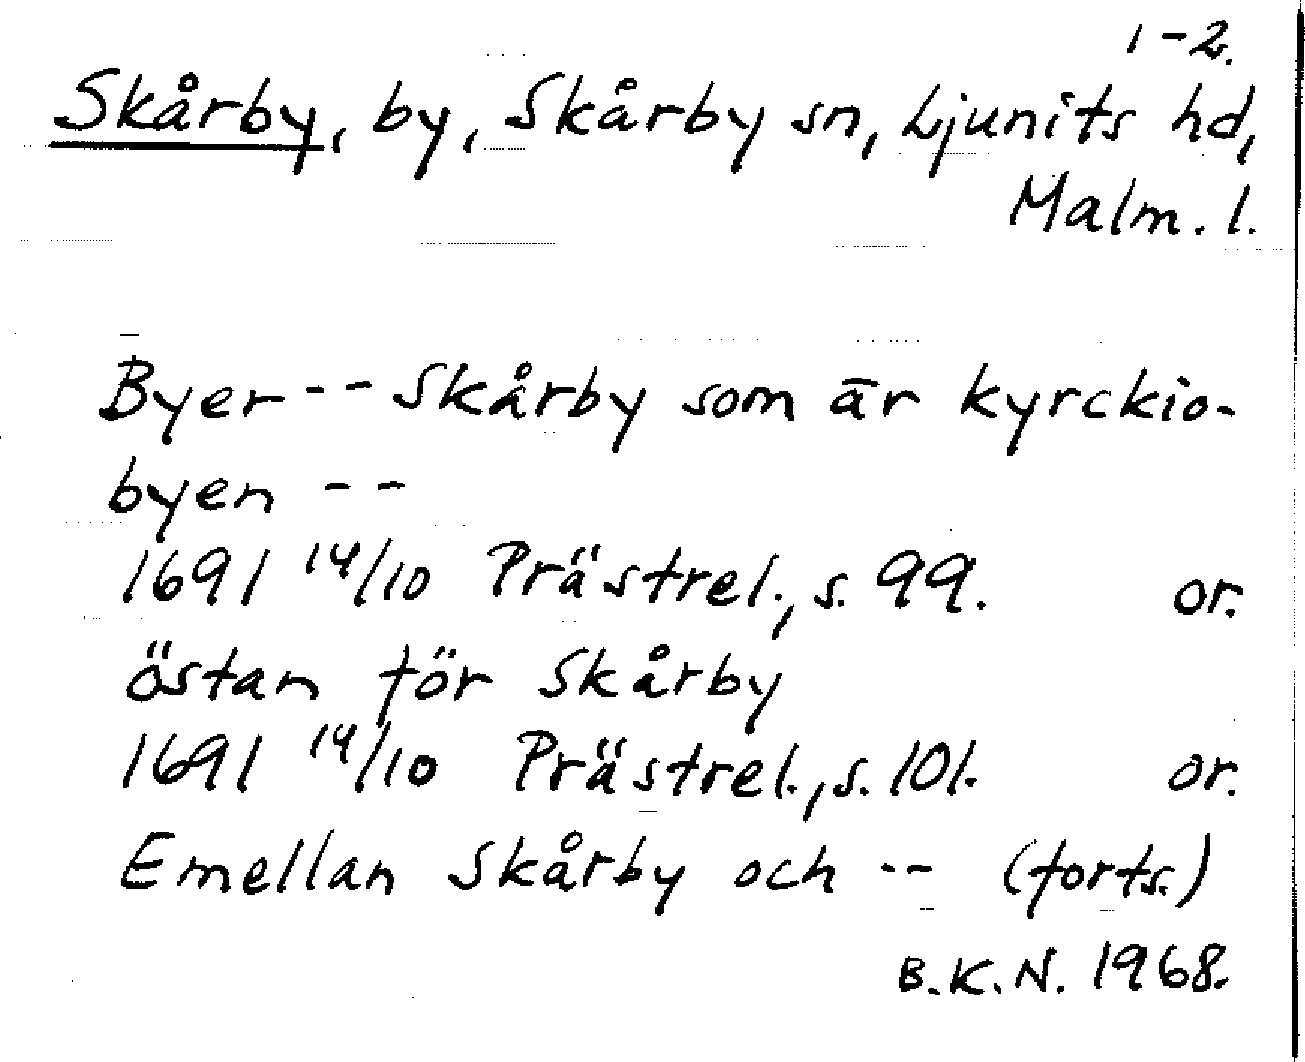 1-2.
Skårby, by, Skårby sn, Ljunits hd,
Malm. l.
Byer -- Skårby som är kyrckio-
byen --
1691 14/10 Prästrel., s. 99. or.
östan för Skårby
1691 14/10 Prästrel., s. 101. or.
Emellan Skårby och -- (forts.)
B.K.N. 1968.